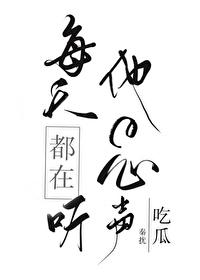 每天
都在
听
他的心声
吃瓜
秦扰